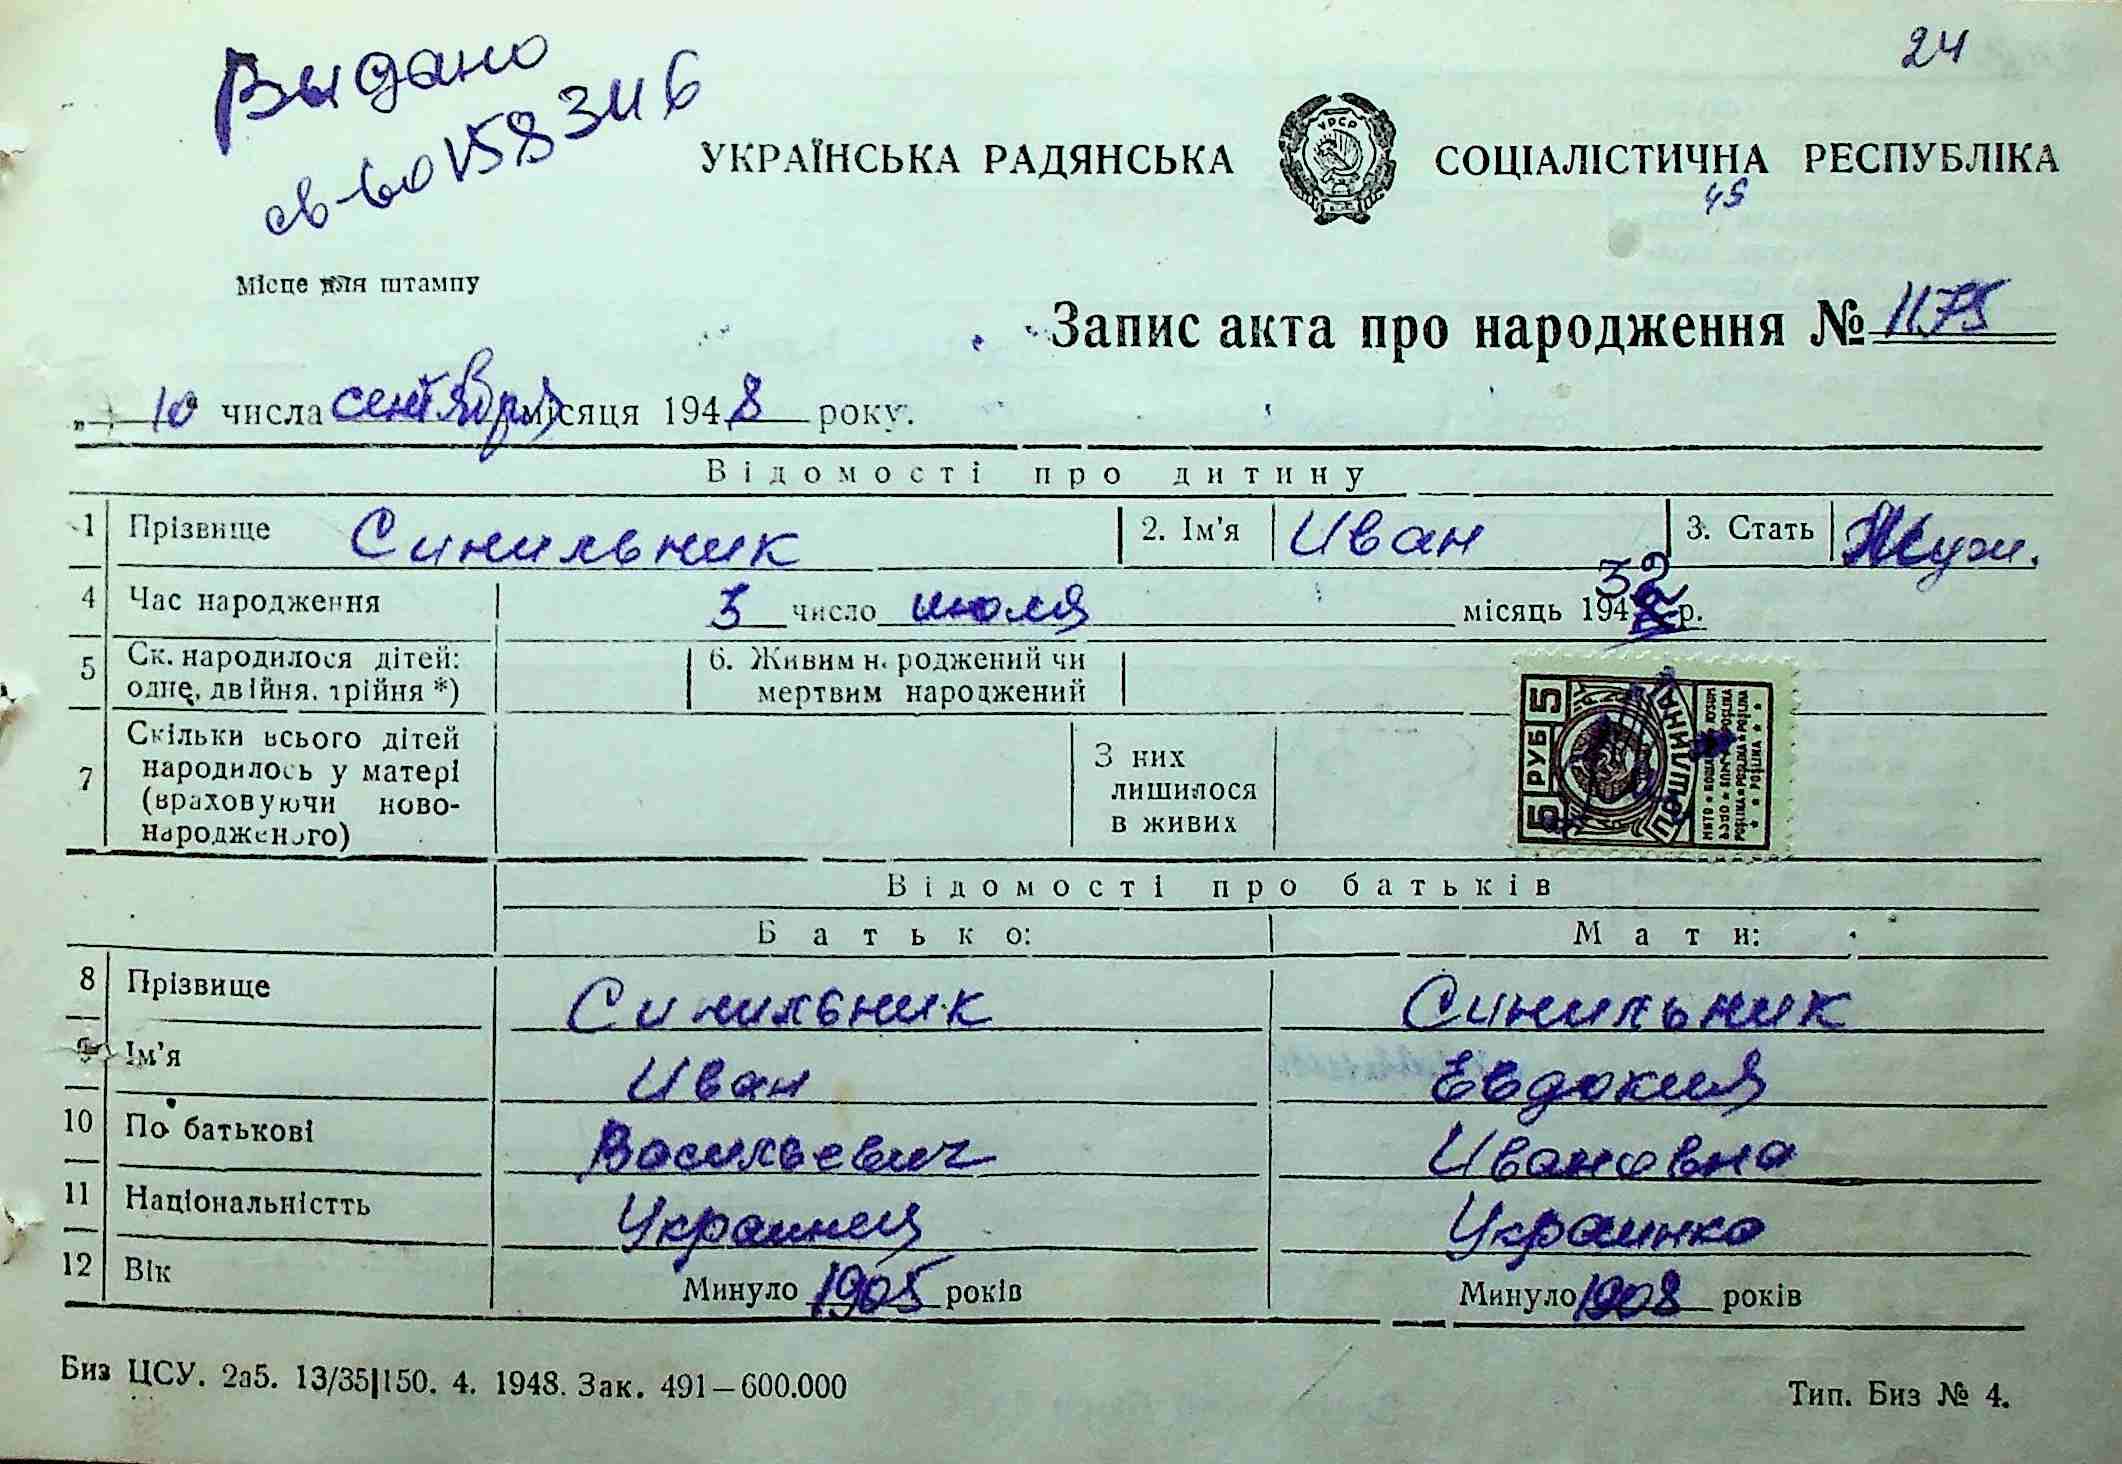 24
Выдано
св-во 583116
УКРАЇНСЬКА РАДЯНСЬКА СОЦІАЛІСТИЧНА РЕСПУБЛІКА
УРСР
45
Місце для штампу
Запис акта про народження № 1175
„ 10 числа сентября місяця 1948 року.
Відомості про дитину
1 Прізвище Синильник 2. Ім'я Иван 3. Стать Муж.
32
4 Час народження 3 число июля місяць 194 р.
5 Ск. народилося дітей: одне, двійня, трійня *) 6. Живим народжений чи мертвим народжений
7 Скільки всього дітей народилось у матері (враховуючи новонародженого) З них лишилося в живих
5 РУБ 5
ПОШЛИНА
Відомості про батьків
Батько: Мати:
8 Прізвище Синильник Синильник
9 Ім'я Иван Евдокия
10 По батькові Васильевич Ивановна
11 Національністть Украинец Украинка
12 Вік Минуло 1905 років Минуло 1908 років
Биз ЦСУ. 2а5. 13/35|150. 4. 1948. Зак. 491—600.000
Тип. Биз № 4.